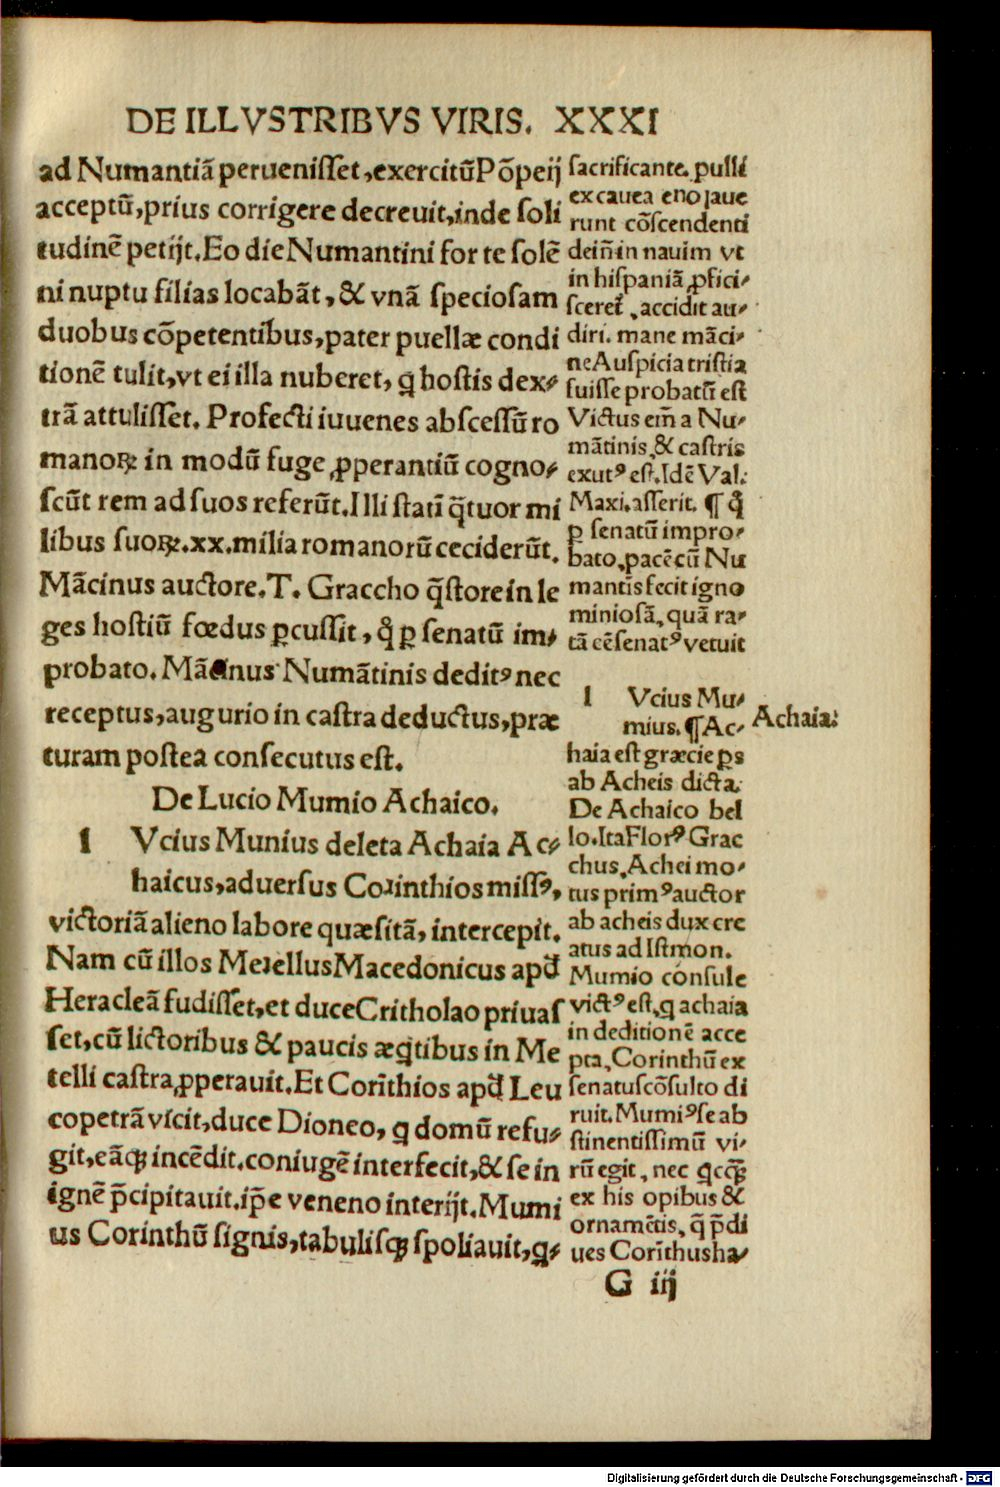 DE ILLVSTRIBVS VIRIS. XXXI
ad Numantiā peruenisset, exercitū Pōpeij
acceptū, prius corrigere decreuit, inde soli
tudinē petijt. Eo die Numantini forte solē
ni nuptu filias locabāt, & vnā speciosam
duobus cōpetentibus, pater puellæ condi
tionē tulit, vt ei illa nuberet, q hostis dex⸗
trā attulisset. Profecti iuuenes abscessū ro
manoꝝ in modū fuge ꝓperantiū cogno⸗
scūt rem ad suos referūt. Illi statī q̄tuor mi
libus suoꝝ .xx. milia romanorū ceciderūt.
Mācinus auctore. T. Graccho q̄store in le
ges hostiū fœdus ꝑcussit, q̊ ꝑ senatū im⸗
probato. Mācinus Numātinis deditꝰ nec
receptus, augurio in castra deductus, præ
turam postea consecutus est.
De Lucio Mumio Achaico.
l Vcius Munius deleta Achaia Ac⸗
haicus, aduersus Corinthios missꝰ,
victoriā alieno labore quæsitā, intercepit.
Nam cū illos Metellus Macedonicus apđ
Heracleā fudisset, et duce Critholao priuas
set, cū lictoribus & paucis æq̇tibus in Me
telli castra ꝓperauit. Et Corīthios apđ Leu
copetrā vicit, duce Dioneo, q domū refu⸗
git, eāqꝫ incēdit. coniugē interfecit, & se in
ignē p̄cipitauit. ip̄e veneno interijt. Mumi
us Corinthū signis, tabulisqꝫ spoliauit, q⸗
sacrificante. pulli
ex cauea euolaue
runt cōscendenti
dein̄ in nauim vt
in hispaniā ꝓfici⸗
sceret̄, accidit au⸗
diri. mane māci⸗
ne Auspicia tristia
fuisse probatū est
Victus em̄ a Nu⸗
mātinis, & castris
exutꝰ est. Idē Val.
Maxi. asserit. ¶ q̊
ꝑ senatū impro⸗
bato, pacē cū Nu
mantīs fecit igno
miniosā, quā ra⸗
tā cē senatꝰ vetuit
l Vcius Mu⸗
mius. ¶ Ac⸗
haia est græcie ꝑs
ab Acheis dicta.
De Achaico bel
lo. Ita Florꝰ Grac
chus, Achei mo⸗
tus primꝰ auctor
ab acheis dux cre
atus ad Istmon.
Mumio consule
victꝰ est, q achaia
in deditionē acce
pta, Corinthū ex
senatuscōsulto di
ruit. Mumiꝰ se ab
stinentissimū vi⸗
rū egit, nec qcq̄ꝫ
ex his opibus &
ornamētis, q̄ p̄di
ues Corīthus ha⸗
Achaia.
G iij
Digitalisierung gefördert durch die Deutsche Forschungsgemeinschaft - DFG